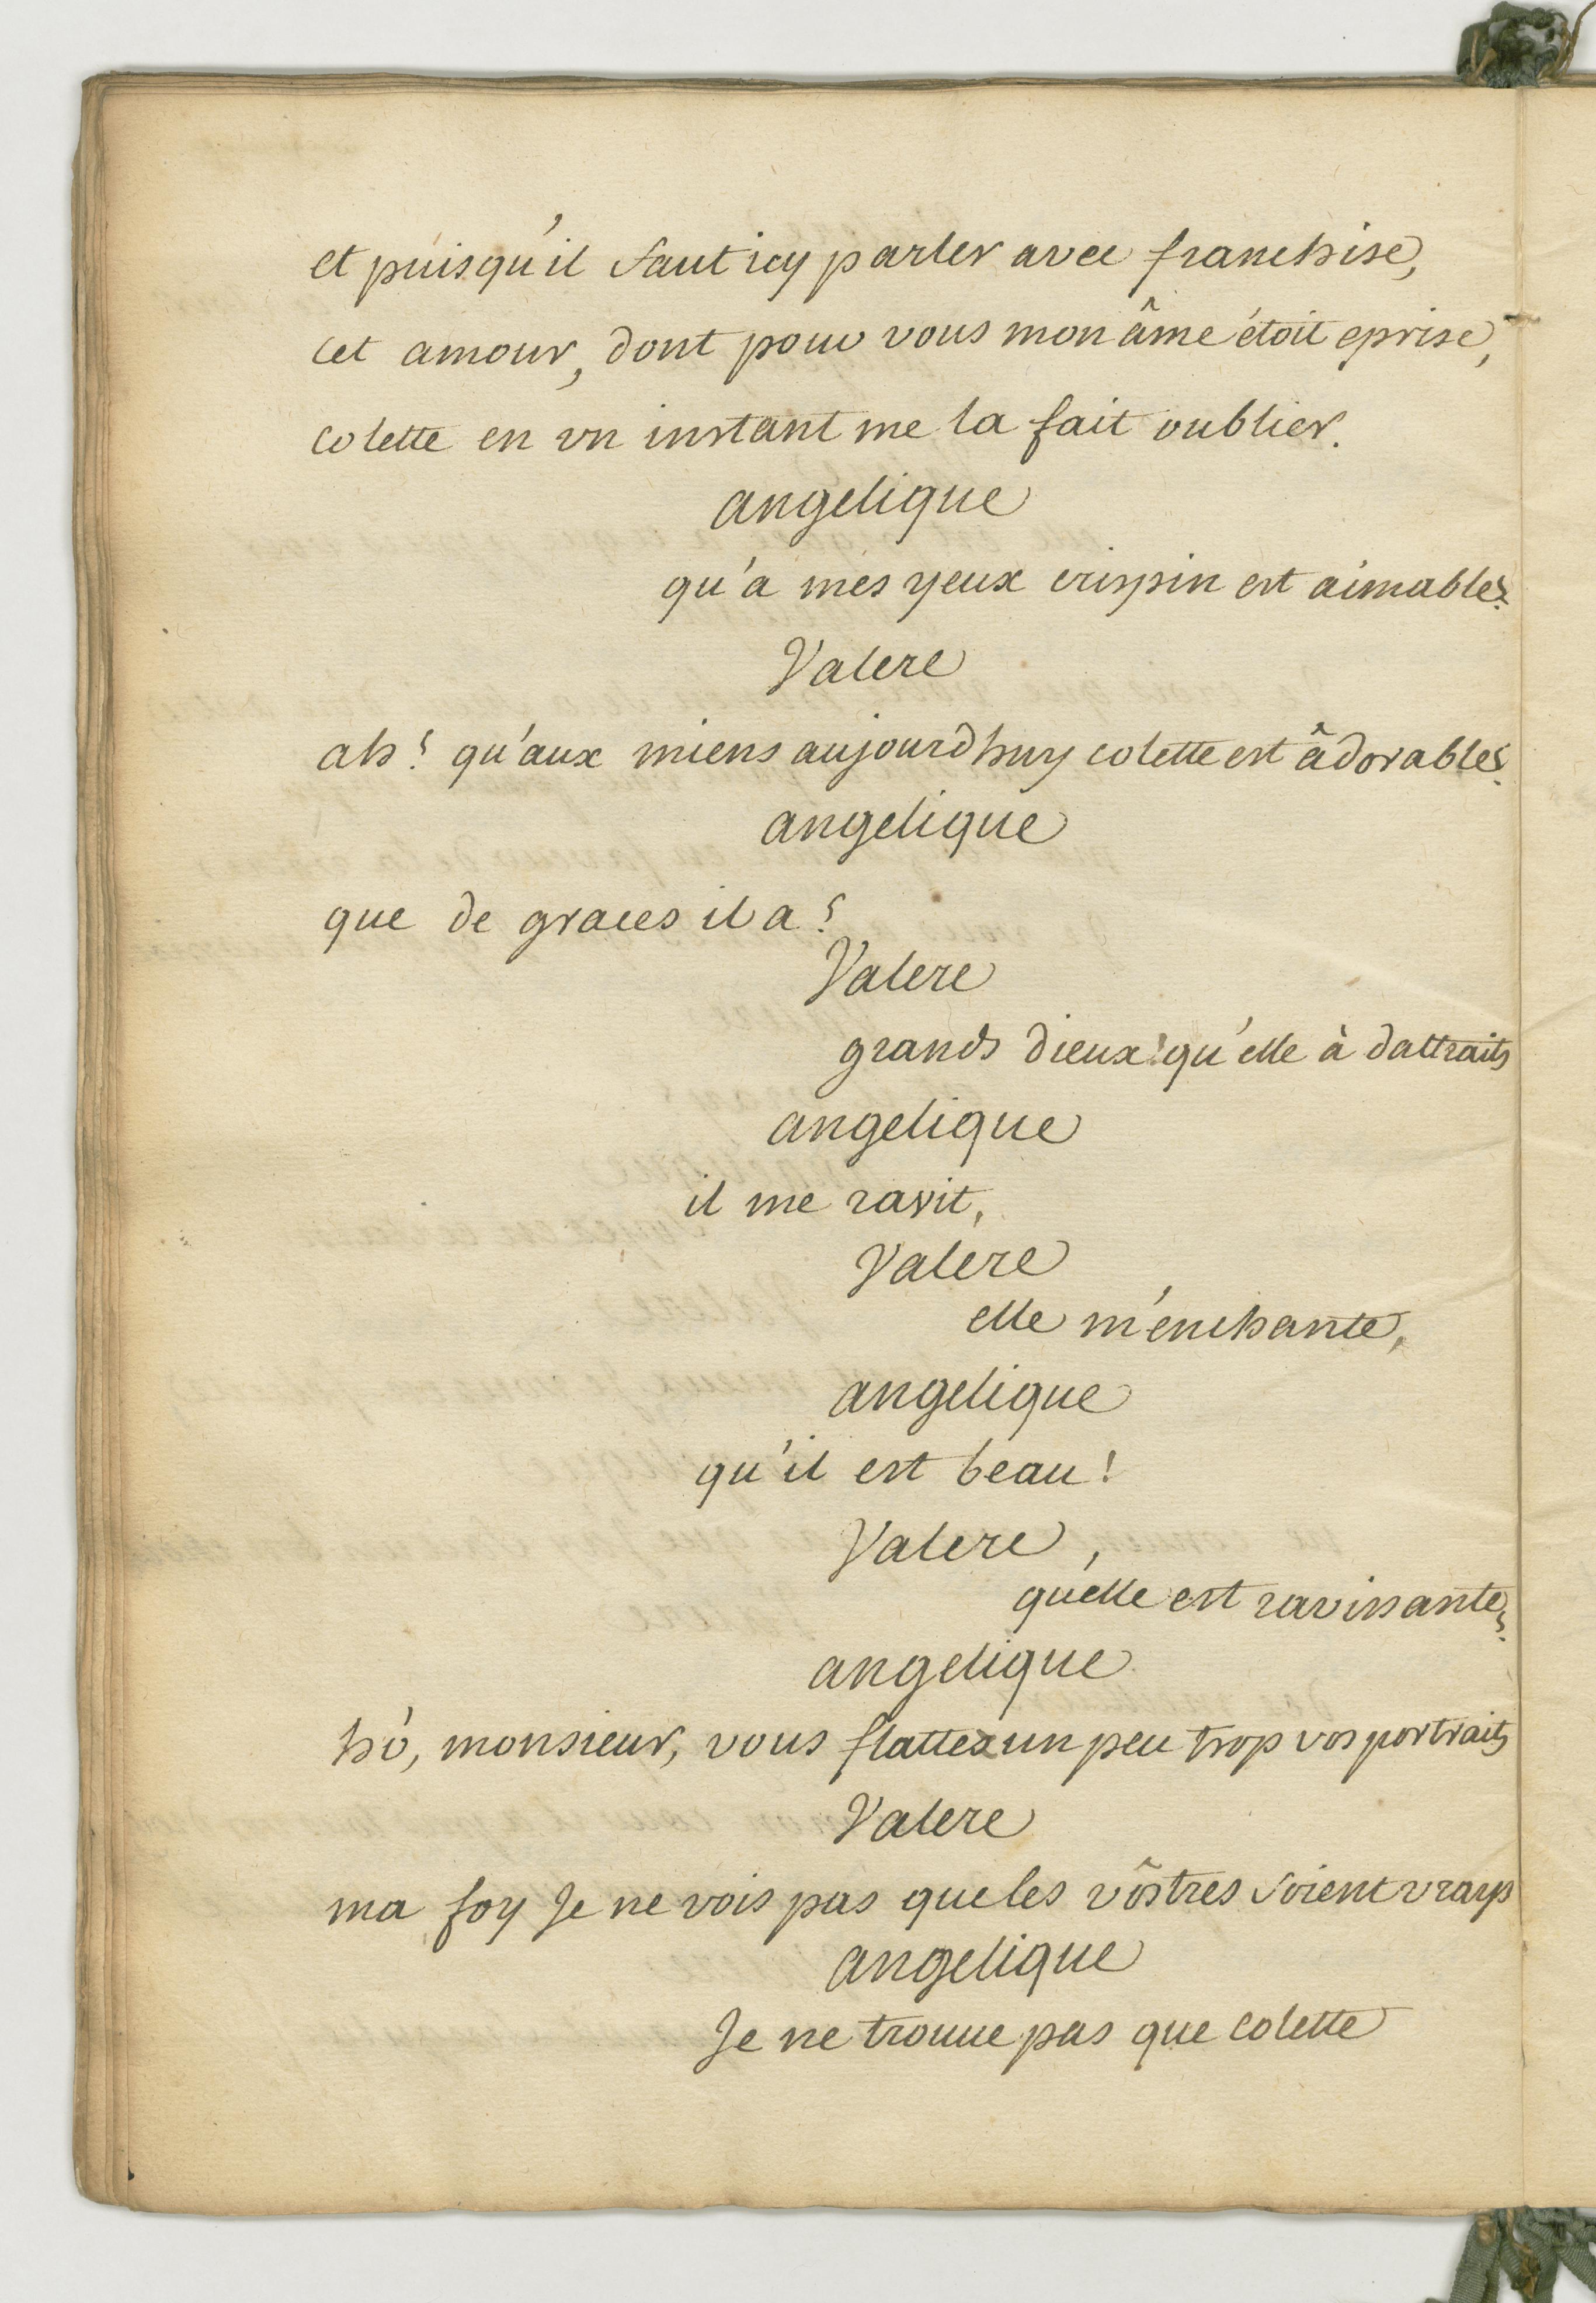 et puisqu'il faut icy parler avec franchise,
cet amour, dont pour vous mon âme étoit eprise,
colette en vn instant me la fait oublier.
angelique
qu'a mes yeux crispin est aimable!
Valere
ah! qu'aux miens aujourdhuy colette est âdorable!
angelique
que de graces il a!
Valere
grands dieux! qu'elle à dattraits
angelique
il me ravit,
Valere
elle m'enchante,
angelique
qu'il est beau!
Valere
qu'elle est ravissante!
angelique
hó, monsieur, vous flattez un peu trop vos portraits
Valere
ma foy Je ne vois pas que les vôstres soient vrays
angelique
Je ne trouue pas que colette